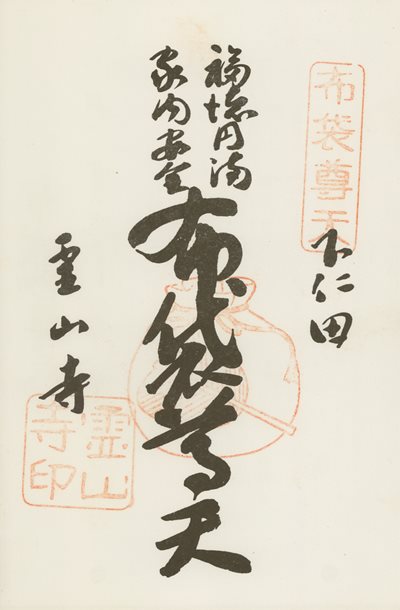 布袋尊天
下仁田
福徳円満
家内安全
布袋尊天
霊山寺
霊山
寺印